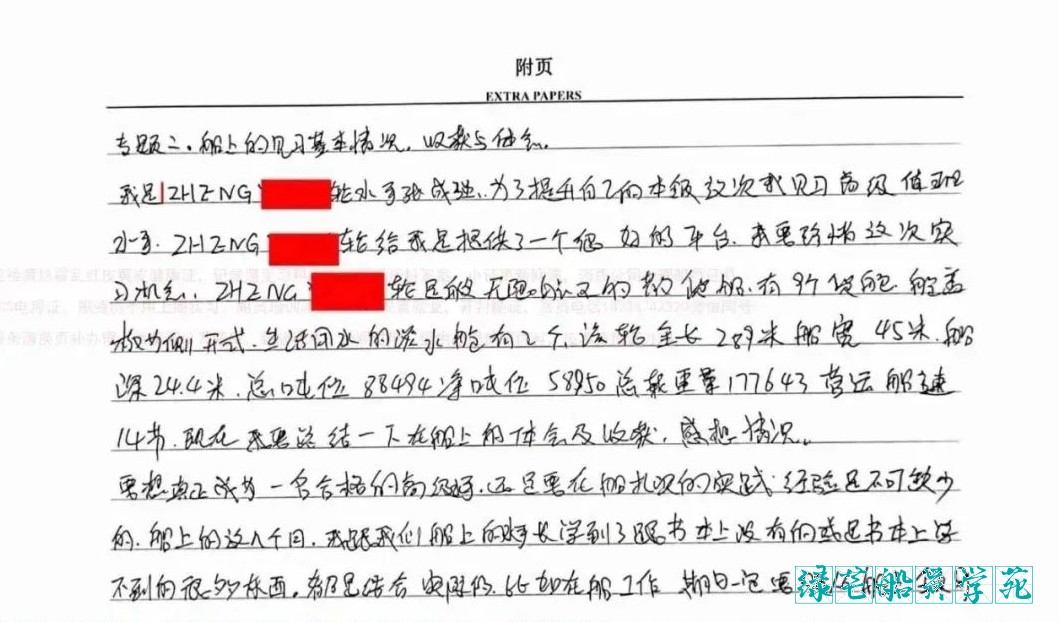 附页
EXTRA PAPERS
专题二。船上的见习基本情况，收获与体会。
我是ZHENG 轮水手张成强，为了提升自己向本级这次我见习高级值班
水手，ZHENG 轮给我是提供了一个很好的平台，我要珍惜这次实
习机会，ZHENG 轮是艘无限航区的散货船，有9个货舱，舱盖
为侧开式，生活用水的淡水舱有2个，该轮全长289米船宽45米，船
深24.4米，总吨位88494净吨位58950总载重量177643营运船速
14节，现在我要总结一下在船上的体会及收获，感想情况。
要想真正成为一名合格的高级，还是要在船扎实的实践，经验是不可缺少
的，船上的这八个月，我跟我们船上的水手长学到了跟书本上没有的或是书本上学
不到的很多东西，都是结合实际的，比如在船工作期间一定要
绿宅船员学苑